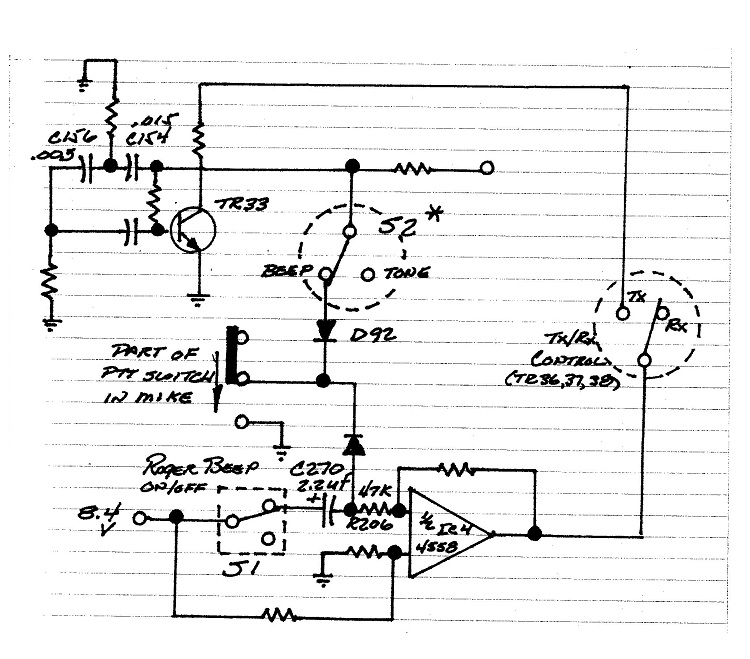 .015
C156
C154
.005
TR33
S2 *
BEEP
TONE
D92
TX
RX
TX/RX
CONTROL
(TR36,37,38)
PART OF
PTT SWITCH
IN MIKE
ROGER BEEP
ON/OFF
C270
2.2uf
+
47K
R206
8.4
V
S1
½
IC4
4558